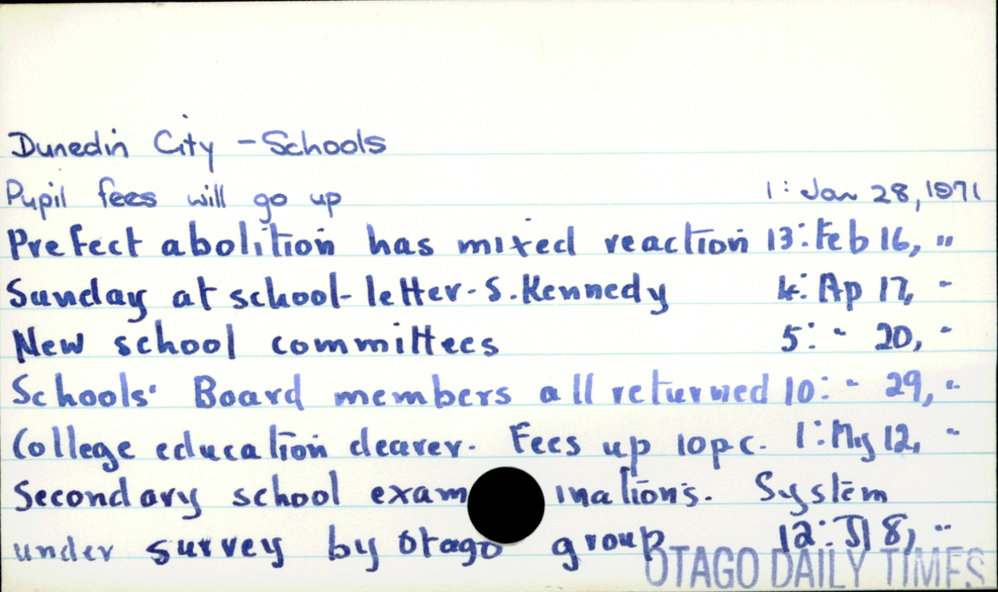 Dunedin City - Schools
Pupil fees will go up 1: Jan 28, 1971
Prefect abolition has mixed reaction 13: Feb 16, "
Sunday at school - letter - S. Kennedy 4: Ap 17, "
New school committees 5: " 20, "
Schools' Board members all returned 10: " 29, "
College education dearer. Fees up 10 p.c. 1: My 12, "
Secondary school examinations. System
under survey by Otago group 12: Jl 8, "
OTAGO DAILY TIMES